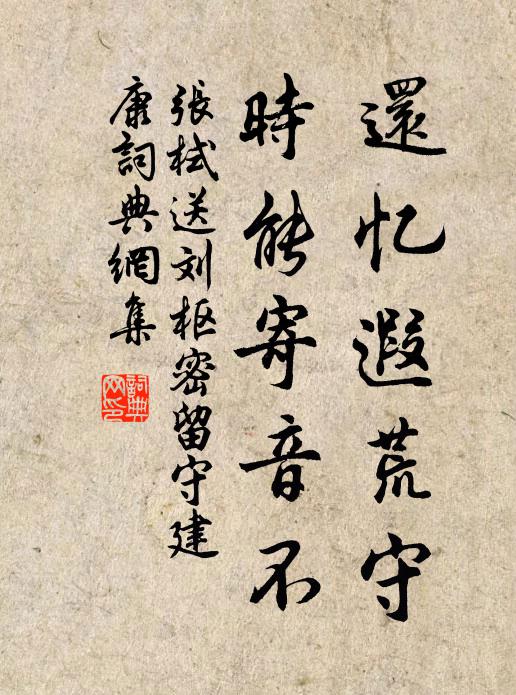 還忆遐荒守
時能寄音不
張栻送刘枢密留守建
康詞典網集
詞典
网印